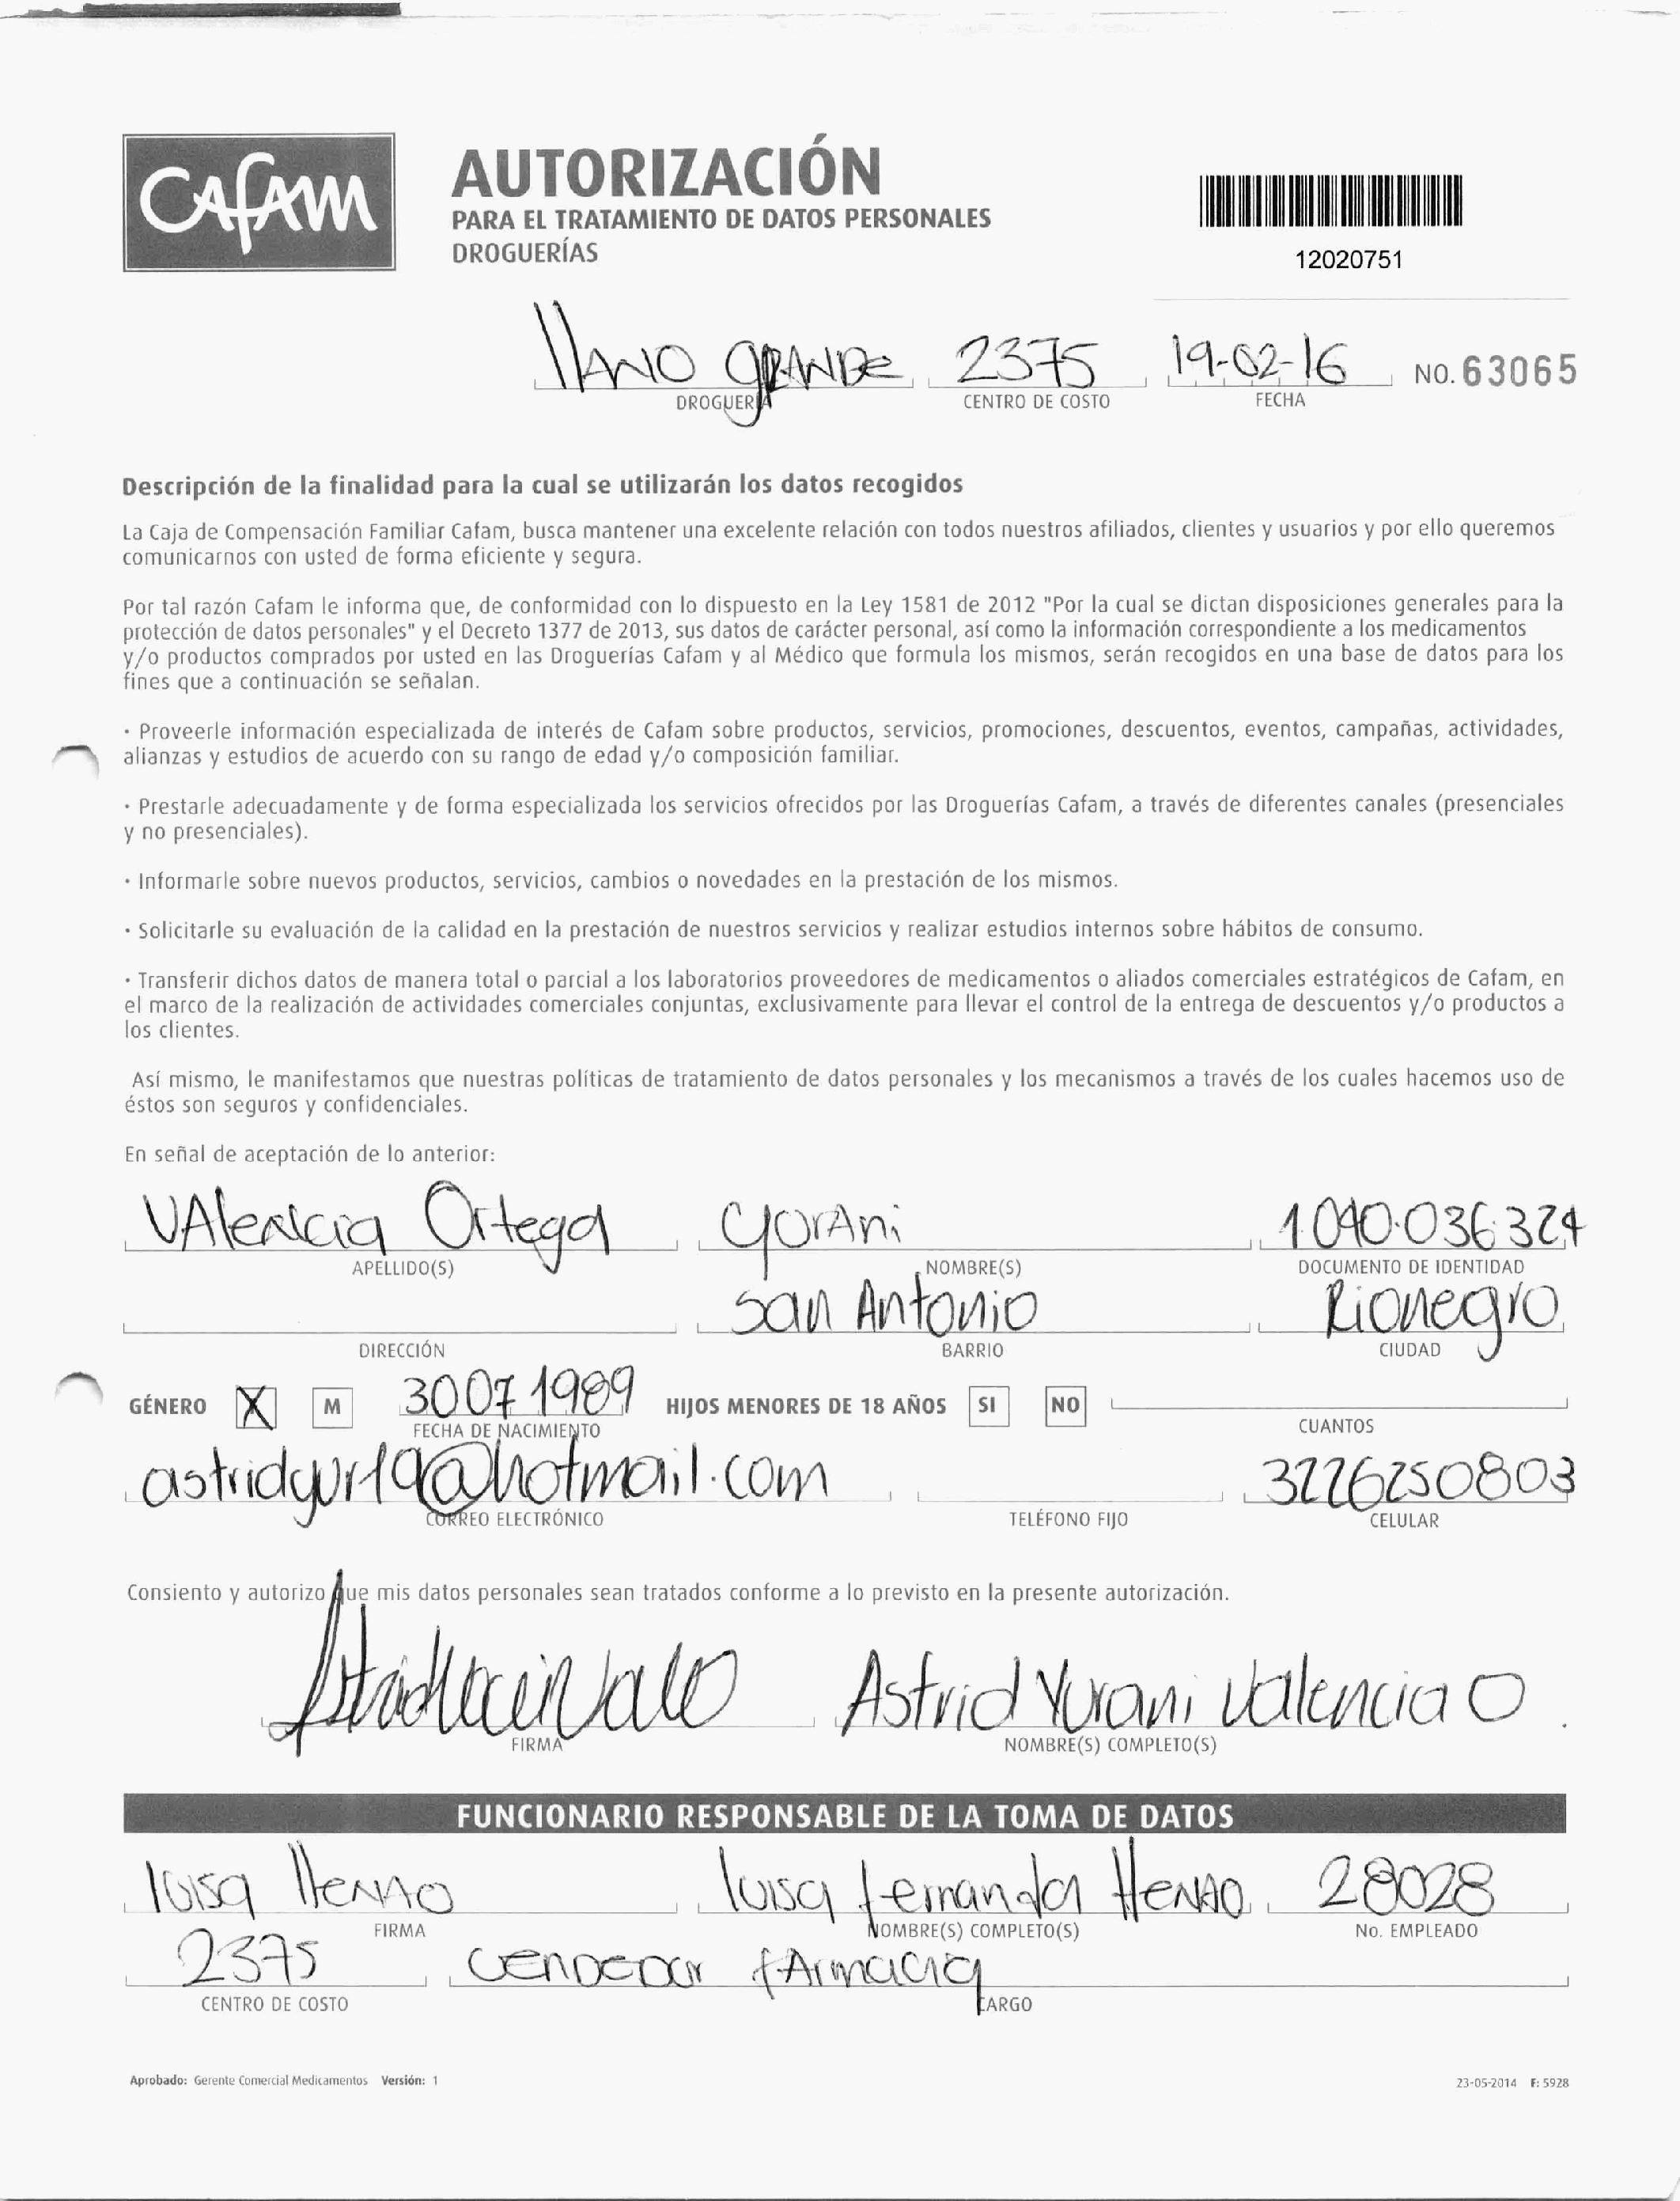 CAFAM
AUTORIZACIÓN
PARA EL TRATAMIENTO DE DATOS PERSONALES
DROGUERÍAS
12020751
llANO GRANDE 2375 19-02-16 NO. 63065
DROGUERÍA CENTRO DE COSTO FECHA
Descripción de la finalidad para la cual se utilizarán los datos recogidos
La Caja de Compensación Familiar Cafam, busca mantener una excelente relación con todos nuestros afiliados, clientes y usuarios y por ello queremos
comunicarnos con usted de forma eficiente y segura.
Por tal razón Cafam le informa que, de conformidad con lo dispuesto en la Ley 1581 de 2012 "Por la cual se dictan disposiciones generales para la
protección de datos personales" y el Decreto 1377 de 2013, sus datos de carácter personal, así como la información correspondiente a los medicamentos
y/o productos comprados por usted en las Droguerías Cafam y al Médico que formula los mismos, serán recogidos en una base de datos para los
fines que a continuación se señalan.
· Proveerle información especializada de interés de Cafam sobre productos, servicios, promociones, descuentos, eventos, campañas, actividades,
alianzas y estudios de acuerdo con su rango de edad y/o composición familiar.
· Prestarle adecuadamente y de forma especializada los servicios ofrecidos por las Droguerías Cafam, a través de diferentes canales (presenciales
y no presenciales).
· Informarle sobre nuevos productos, servicios, cambios o novedades en la prestación de los mismos.
· Solicitarle su evaluación de la calidad en la prestación de nuestros servicios y realizar estudios internos sobre hábitos de consumo.
· Transferir dichos datos de manera total o parcial a los laboratorios proveedores de medicamentos o aliados comerciales estratégicos de Cafam, en
el marco de la realización de actividades comerciales conjuntas, exclusivamente para llevar el control de la entrega de descuentos y/o productos a
los clientes.
Así mismo, le manifestamos que nuestras políticas de tratamiento de datos personales y los mecanismos a través de los cuales hacemos uso de
éstos son seguros y confidenciales.
En señal de aceptación de lo anterior:
VAlencia Ortega YorAni 1.040.036.324
APELLIDO(S) NOMBRE(S) DOCUMENTO DE IDENTIDAD
San Antonio Rionegro
DIRECCIÓN BARRIO CIUDAD
GÉNERO X M 30 07 1989 HIJOS MENORES DE 18 AÑOS SI NO
FECHA DE NACIMIENTO CUANTOS
astridyur19@hotmail.com 3226250803
CORREO ELECTRÓNICO TELÉFONO FIJO CELULAR
Consiento y autorizo que mis datos personales sean tratados conforme a lo previsto en la presente autorización.
Astrid Yurani Valencia O
FIRMA NOMBRE(S) COMPLETO(S)
FUNCIONARIO RESPONSABLE DE LA TOMA DE DATOS
luisa HenAO luisa fernanda HenAO 28028
FIRMA NOMBRE(S) COMPLETO(S) No. EMPLEADO
2375 VENDEDOR fArmacia
CENTRO DE COSTO CARGO
Aprobado: Gerente Comercial Medicamentos Versión: 1 23-05-2014 F: 5928